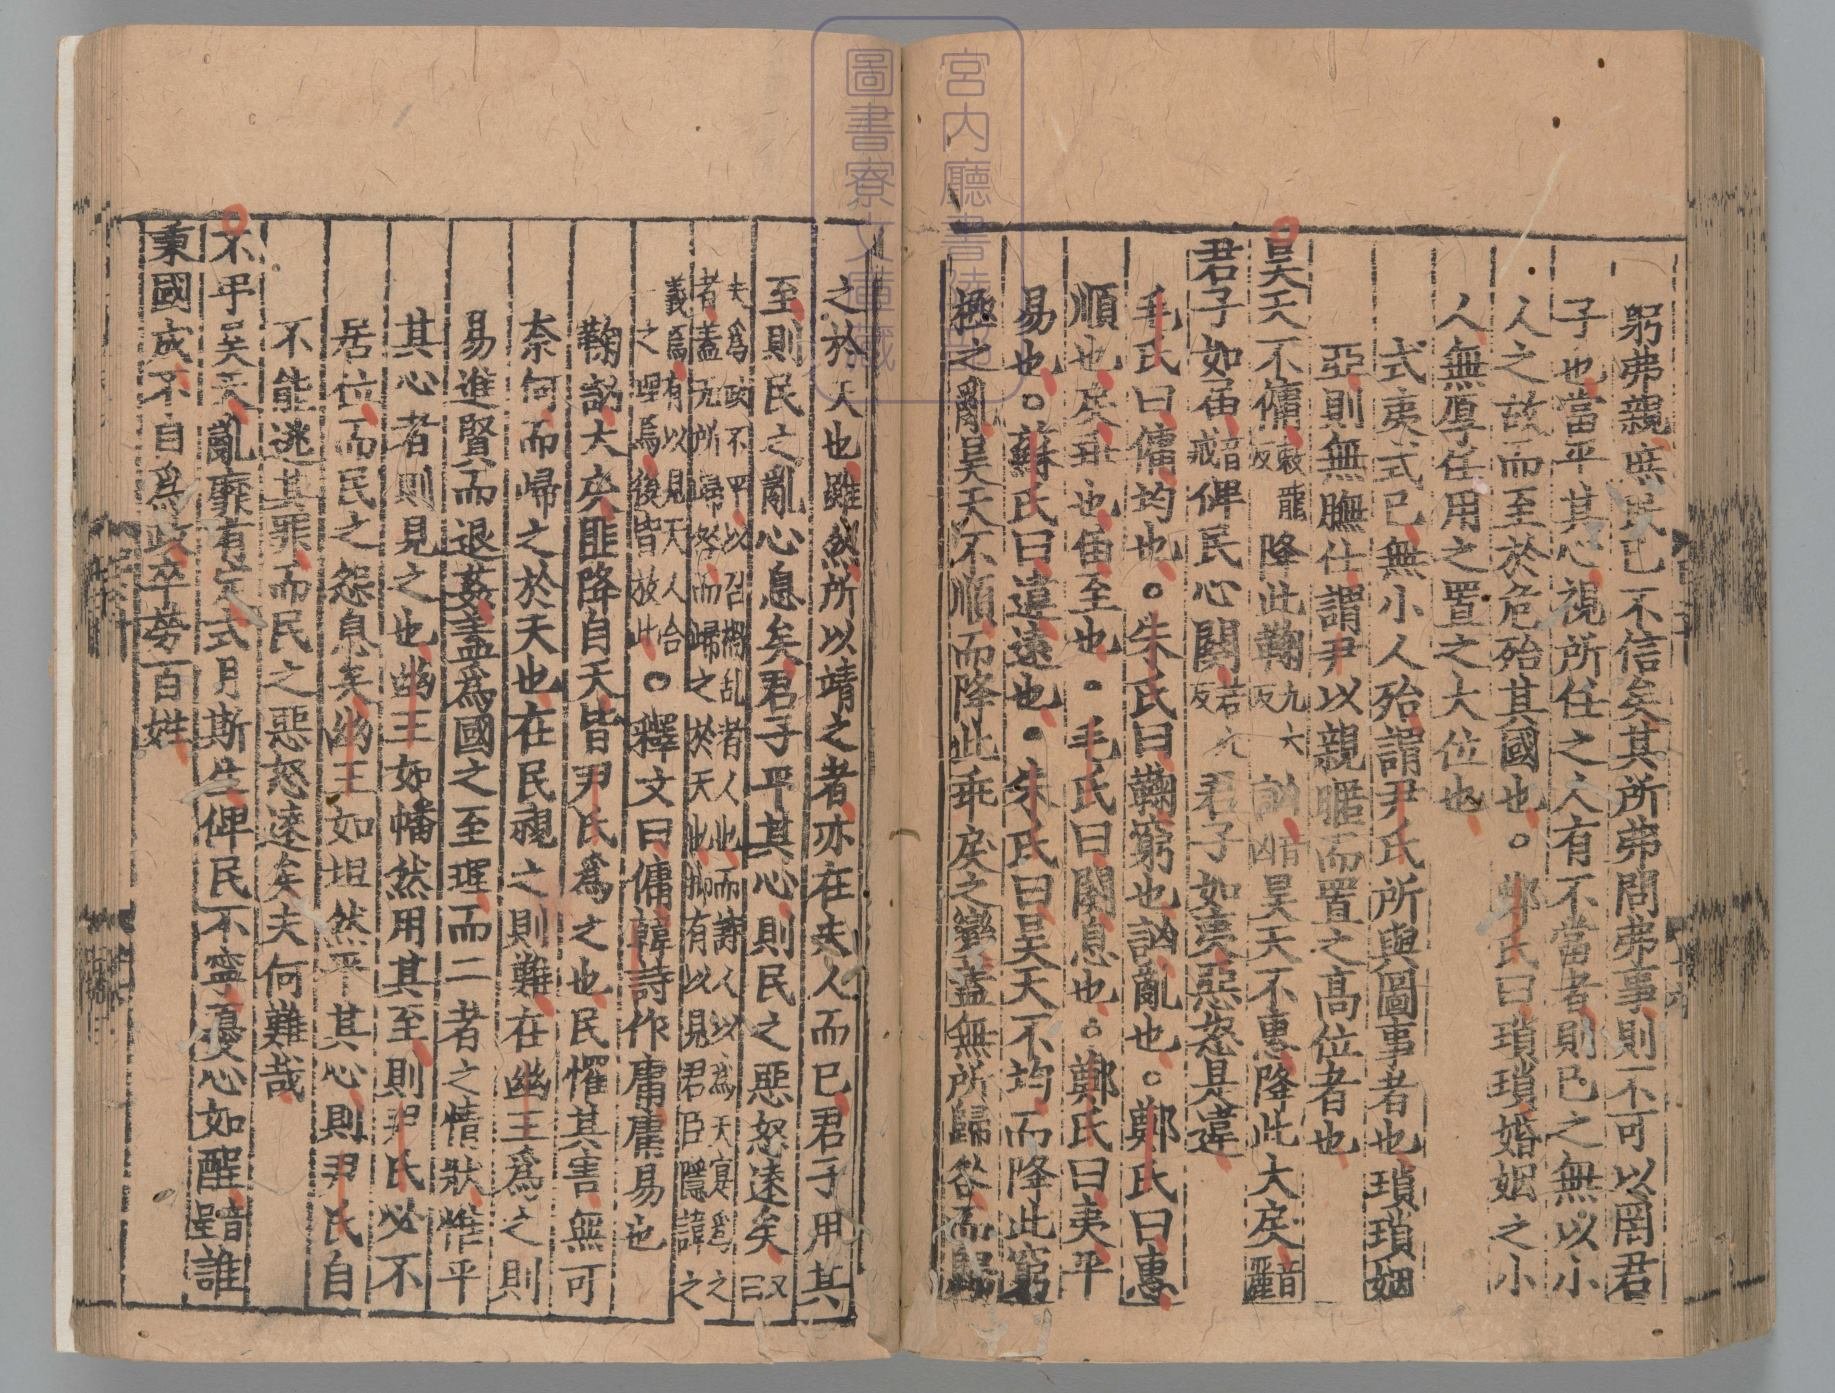 躬弗親庶民已不信矣其所弗問弗事則不可以罔君
子也當平其心視所任之人有不當者則已之無以小
人之故而至於危殆其國也○鄭氏曰瑣瑣婚姻之小
人無厚任用之置之大位也
式夷式已無小人殆謂尹氏所與圖事者也瑣瑣姻
亞則無膴仕謂尹以親暱而置之高位者也
昊天不傭敕龍反降此鞠九六反訩音凶昊天不惠降此大戾音麗
君子如届音戒俾民心闋苦穴反君子如夷惡怒是違
毛氏曰傭均也○朱氏曰鞠窮也訩亂也○鄭氏曰惠
順也戾乖也届至也○毛氏曰闋息也○鄭氏曰夷平
易也○蘇氏曰違遠也○朱氏曰昊天不均而降此窮
極之亂昊天不順而降此乖戾之變蓋無所歸咎而歸
之於天也雖然所以靖之者亦在夫人而已君子用其
至則民之亂心息矣君子平其心則民之惡怒遠矣又曰
夫爲政不平以召禍乱者人也而謝人以爲天實爲之
者蓋无所歸咎而歸之於天也抑有以見君臣隱諱之
義焉有以見天人合
一之理焉後皆放此○釋文曰傭韓詩作庸庸易也
鞠訩大戾匪降自天皆尹氏爲之也民懼其害無可
柰何而歸之於天也在民視之則難在幽王爲之則
易進賢而退姦盖爲國之至理而二者之情狀惟平
其心者則見之也幽王如幡然用其至則尹氏必不
居位而民之怨息矣幽王如坦然平其心則尹氏自
不能逃其罪而民之惡怒遠矣夫何難哉
不弔昊天亂靡有定式月斯生俾民不寧憂心如酲音呈誰
秉國成不自爲政卒勞百姓
宮內廳書陵部
圖書寮文庫藏